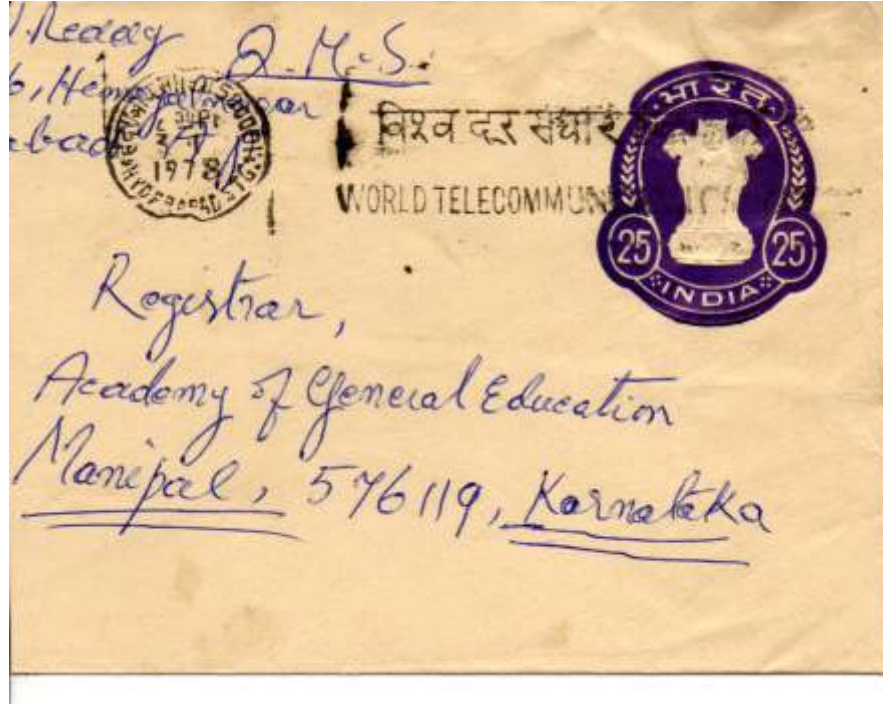 Reddy
Q.M.S.
1978
HYDERABAD
विश्व दूर संचार
WORLD TELECOMMUN
भारत
25 25
INDIA
Registrar,
Academy of General Education
Manipal, 576119, Karnataka